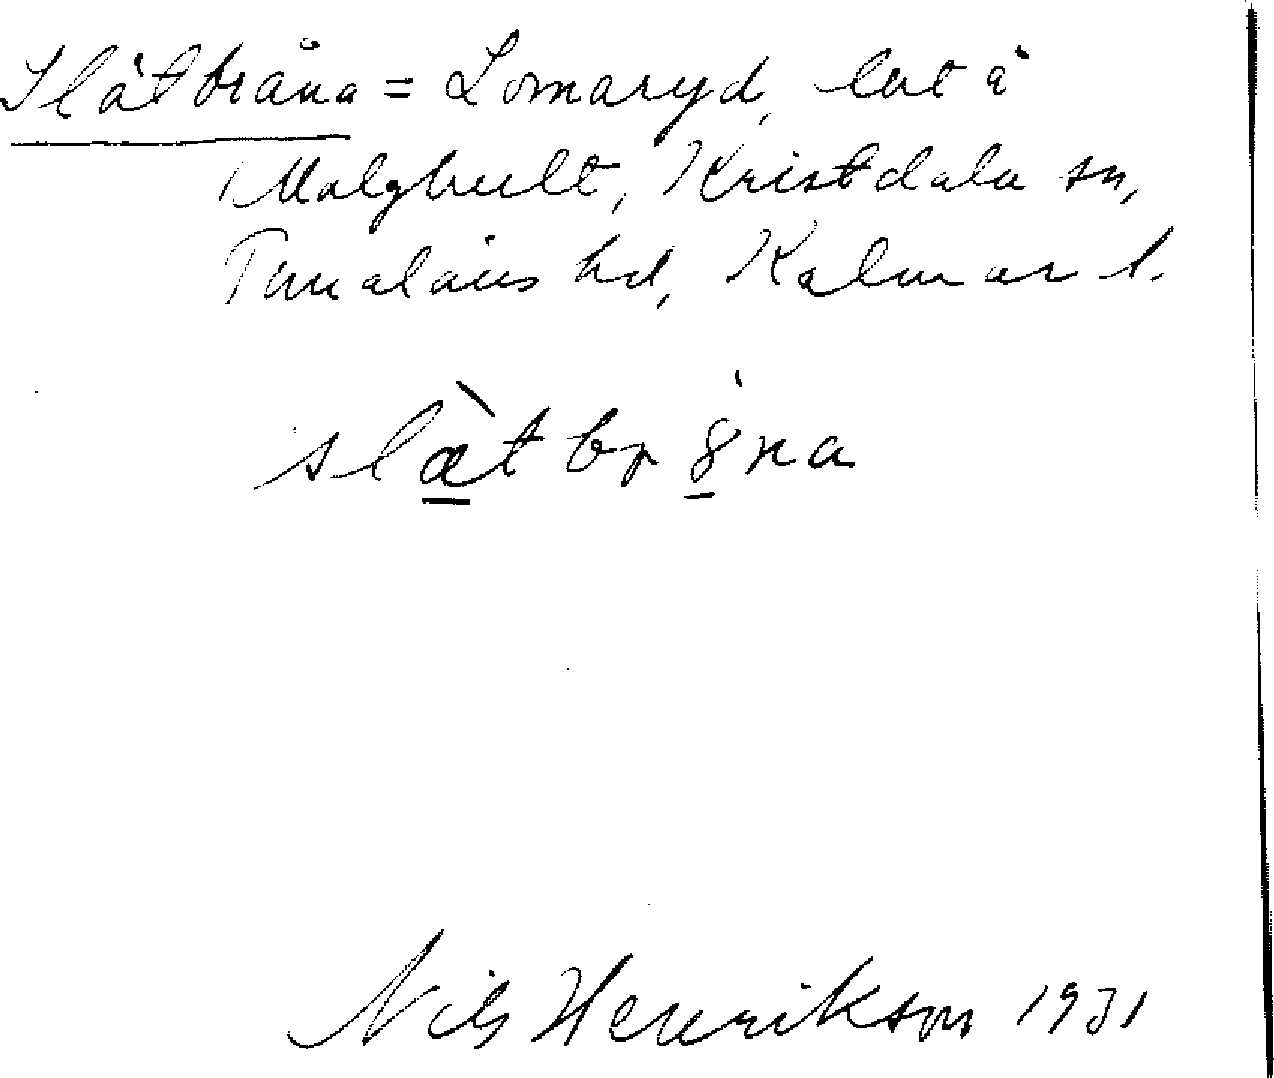 Slåtbråna = Lomaryd, lht å
Malghult, Kristdala sn,
Tunaläns hd, Kalmar l.
slàtbrg̊na
Nils Henrikson 1931